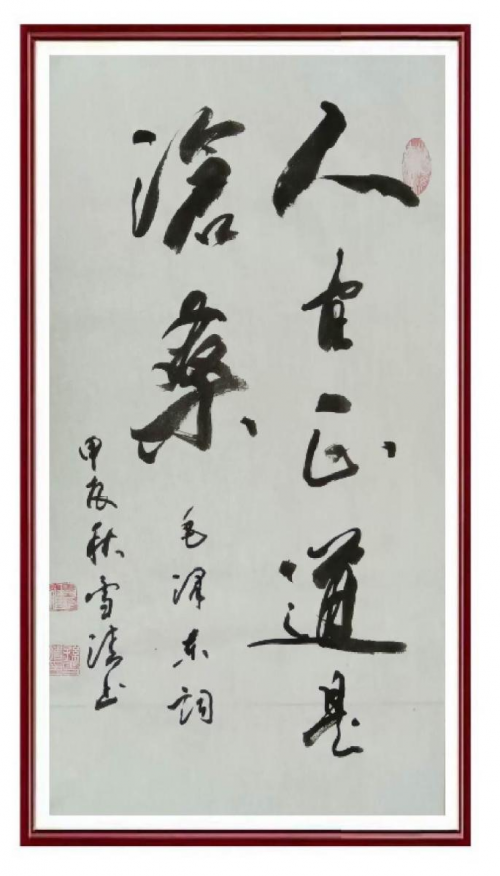 人间正道是
滄桑
毛泽东詞
甲辰秋雪涛书